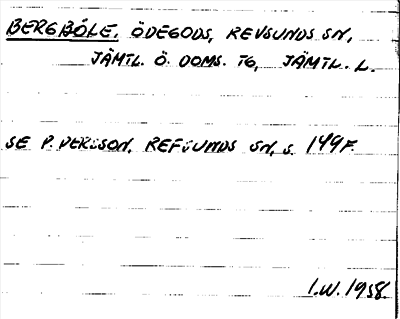 BERGBÖLE, ÖDEGODS, REVSUNDS SN,
JÄMTL. Ö. DOMS. TG, JÄMTL. L.
SE P. PERSSON, REFSUNDS SN, s. 149 F.
I.W. 1958